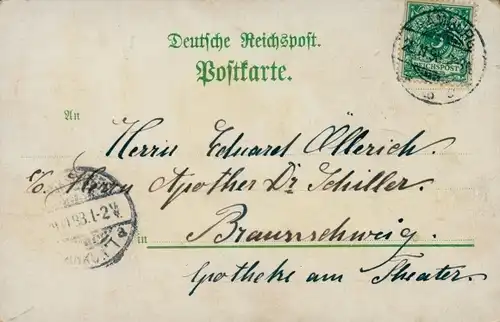 Deutsche Reichspost.
Postkarte.
REICHSPOST
An
Herrn Eduard Öllerich.
c/o Herrn Apotheker Dr Schiller.
in Braunschweig.
Apotheke am Theater.
93.1-2N.